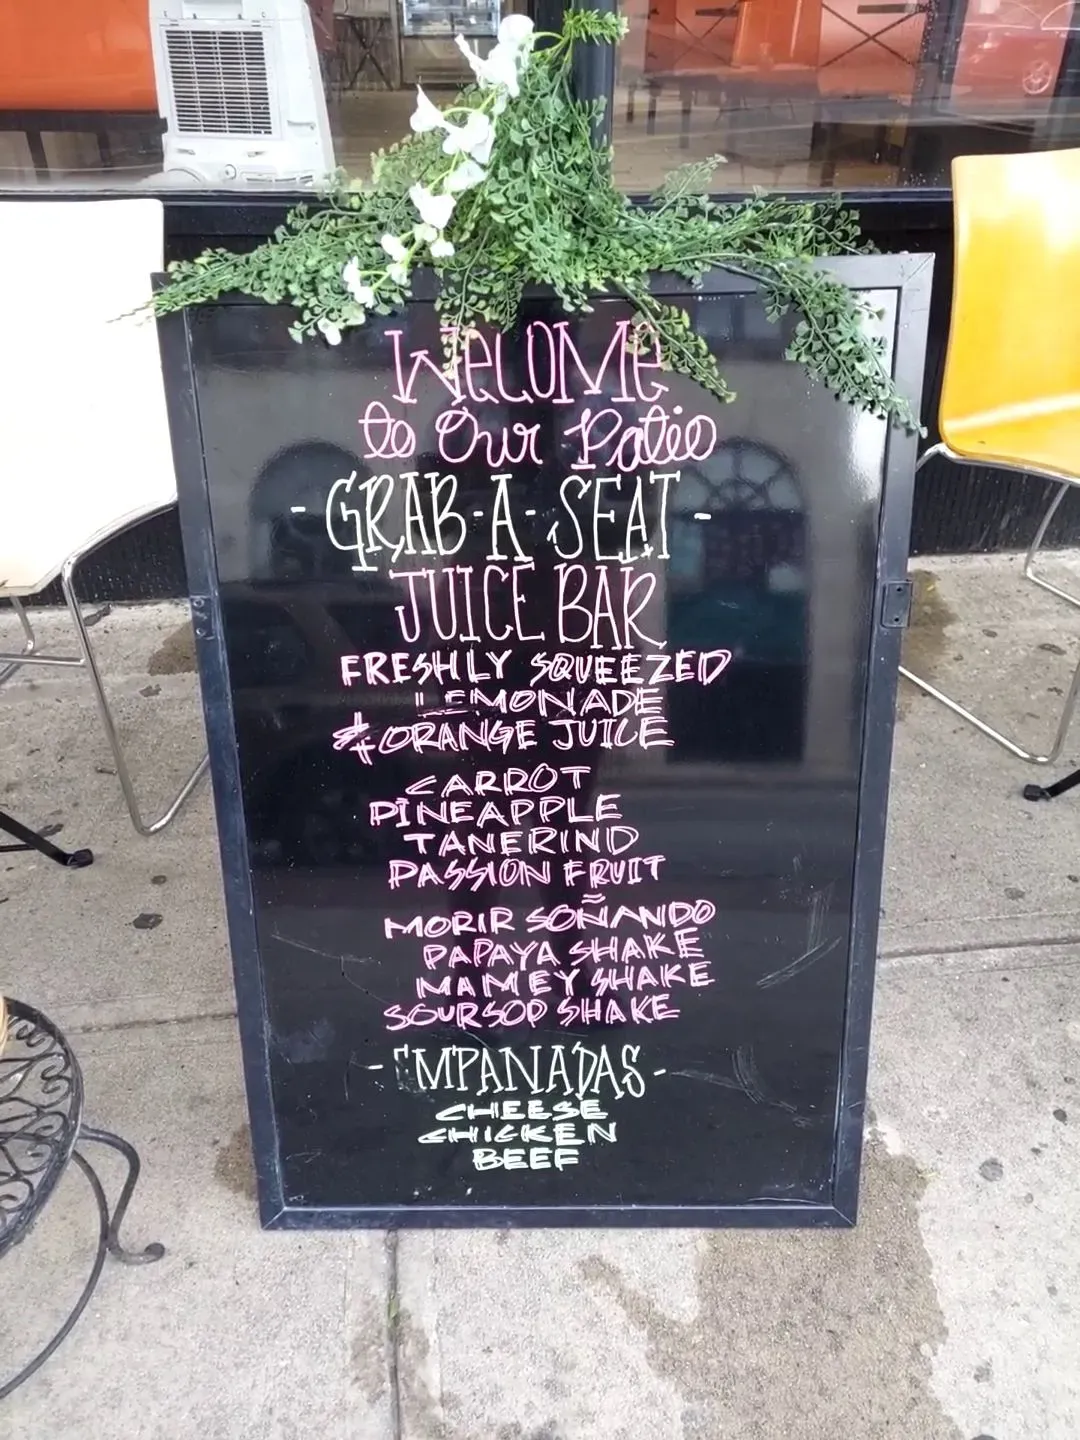 WelOMe
to Our Patio
-GRAB-A-SEAT-
JUICE BAR
FRESHLY SQUEEZED
LEMONADE
+ORANGE JUICE
CARROT
PINEAPPLE
TANERIND
PASSION FRUIT
MORIR SOÑANDO
PAPAYA SHAKE
MAMEY SHAKE
SOURSOP SHAKE
-EMPANADAS-
CHEESE
CHICKEN
BEEF